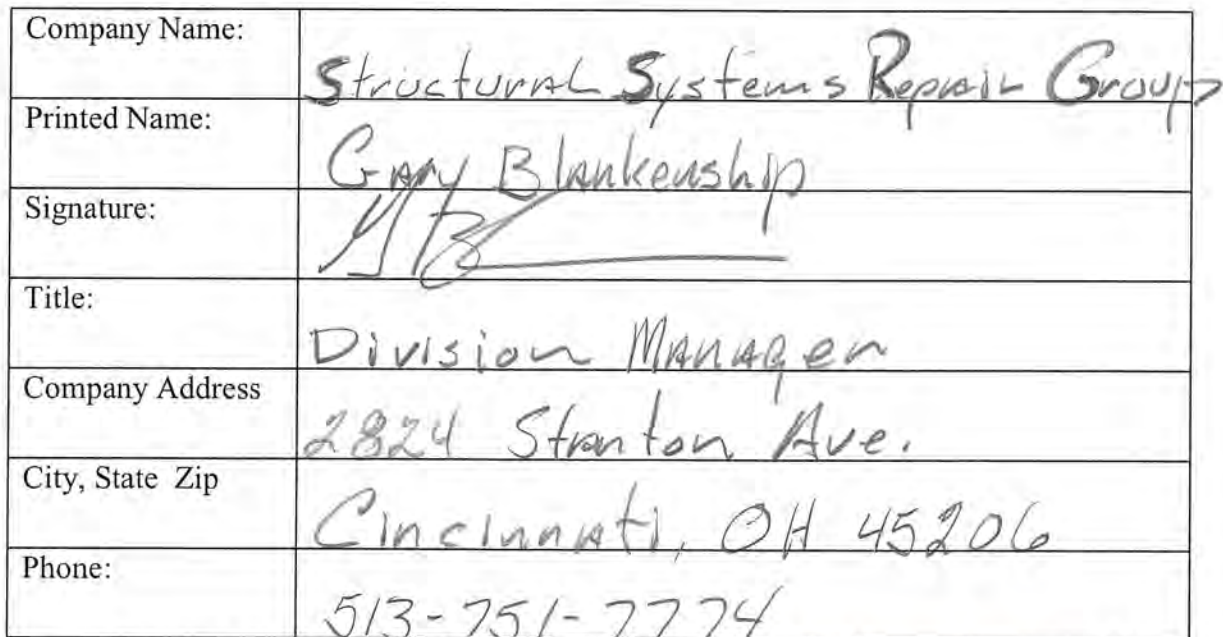 Company Name:
Structural Systems Repair Group
Printed Name:
Gary Blankenship
Signature:
GB
Title:
Division Manager
Company Address
2824 Stanton Ave.
City, State Zip
Cincinnati, OH 45206
Phone:
513-751-7774